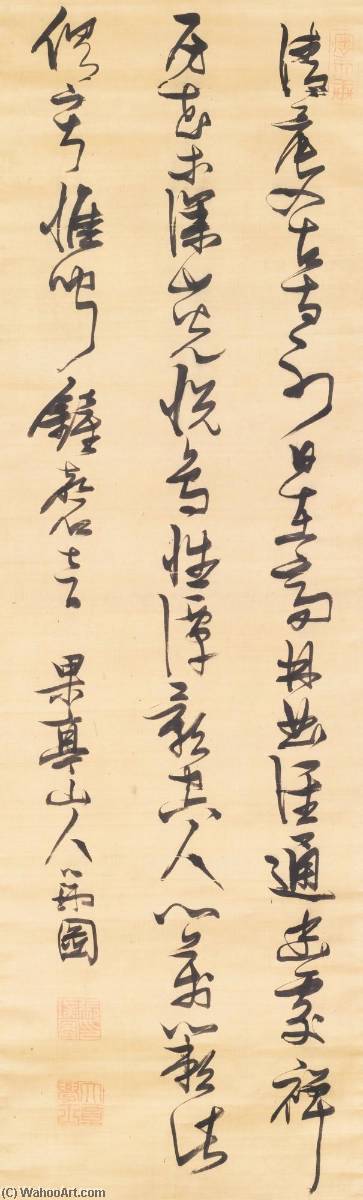 清晨入古寺初日高林曲徑通幽處禪
房花木深山光悅鳥性潭影空人心萬籟此
俱寂惟聞鐘磬音 果亭山人
(C) WahooArt.com